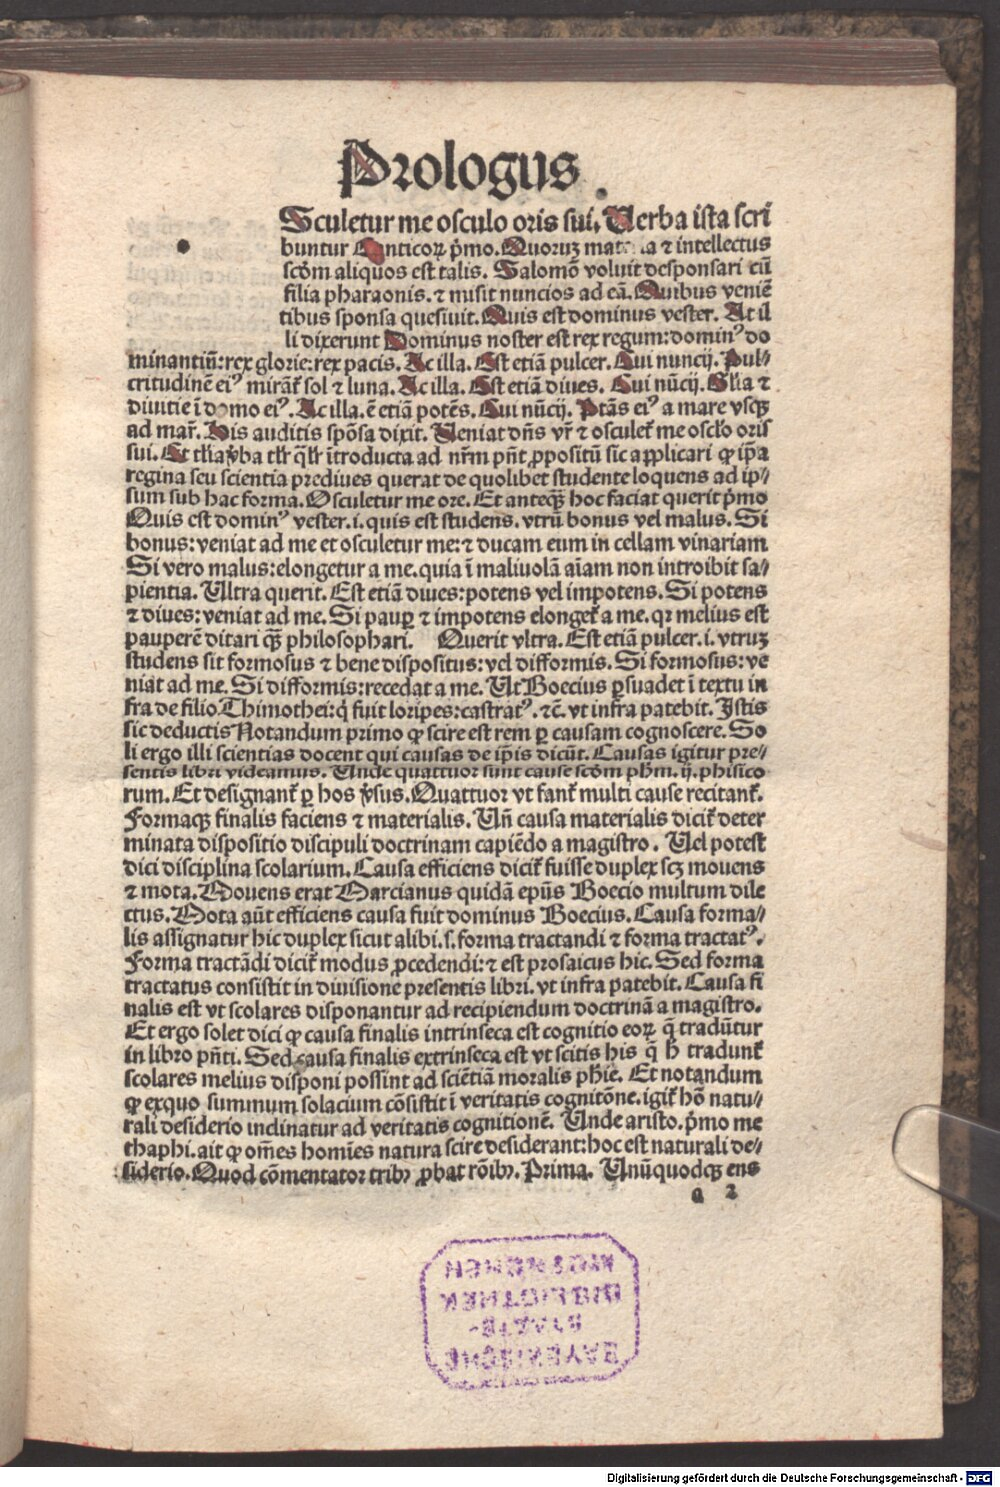 Prologus
Sculetur me osculo oris sui. Verba ista scri
buntur Canticoꝝ p̄mo. Quoruꝫ materia ⁊ intellectus
scd̄m aliquos est talis. Salomō voluit desponsari cū
filia pharaonis. ⁊ misit nuncios ad eā. Quibus veniē
tibus sponsa quesiuit. Quis est dominus vester. At il
li dixerunt Dominus noster est rex regum: dominꝰ do
minantiū: rex glorie: rex pacis. Ac illa. Est etiā pulcer. Cui nuncij. Pul⸗
critudinē eiꝰ mirāt̄ sol ⁊ luna. Ac illa. Est etiā diues. Cui nūcij. Gl̄ia ⁊
diuitie ī domo eiꝰ. Ac illa. ē etiā potēs. Cui nūcij. Ptās eiꝰ a mare vsqꝫ
ad mar̄. His auditis spōsa dixit. Veniat dn̄s vr̄ ⁊ osculet̄ me oscl̓o oris
sui. Et introducta ad nr̄m pn̄t ꝓpositū sic applicari ꝙ ip̄a
regina seu scientia prediues querat de quolibet studente loquens ad ip⸗
sum sub hac forma. Osculetur me ore. Et anteqꝫ̄ hoc faciat querit p̄mo
Quis est dominꝰ vester. i. quis est studens. vtrū bonus vel malus. Si
bonus: veniat ad me et osculetur me: ⁊ ducam eum in cellam vinariam
Si vero malus: elongetur a me. quia ī maliuolā aīam non introibit sa⸗
pientia. Ultra querit. Est etiā diues: potens vel impotens. Si potens
⁊ diues: veniat ad me. Si pauꝑ ⁊ impotens elonget̄ a me. qꝛ melius est
pauperē ditari qꝫ̄ philosophari. Querit vltra. Est etiā pulcer. i. vtruꝫ
studens sit formosus ⁊ bene dispositus: vel difformis. Si formosus: ve
niat ad me. Si difformis: recedat a me. Ut Boecius ꝑsuadet ī textu in
fra de filio Thimothei: q̇ fuit loripes: castratꝰ. ⁊c̄. vt infra patebit. Istis
sic deductis Notandum primo ꝙ scire est rem ꝑ causam cognoscere. So
li ergo illi scientias docent qui causas de ip̄is dicūt. Causas igitur pre⸗
sentis libri videamus. Unde quattuor sunt cause scd̄m ph̄m. ij. phisico
rum. Et designant̄ ꝑ hos v̓sus. Quattuor vt fant̄ multi cause recitant̄.
Formaqꝫ finalis faciens ⁊ materialis. Un̄ causa materialis dicit̄ deter
minata dispositio discipuli doctrinam capiēdo a magistro. Uel potest
dici disciplina scolarium. Causa efficiens dicit̄ fuisse duplex scꝫ mouens
⁊ mota. Mouens erat Marcianus quidā ep̄us Boecio multum dile
ctus. Mota aūt efficiens causa fuit dominus Boecius. Causa forma⸗
lis assignatur hic duplex sicut alibi. s. forma tractandi ⁊ forma tractatꝰ.
Forma tractādi dicit̄ modus ꝓcedendi: ⁊ est prosaicus hic. Sed forma
tractatus consistit in diuisione presentis libri. vt infra patebit. Causa fi
nalis est vt scolares disponantur ad recipiendum doctrinā a magistro.
Et ergo solet dici ꝙ causa finalis intrinseca est cognitio eoꝝ q̄ tradūtur
in libro pn̄ti. Sed causa finalis extrinseca est vt scitis his q̄ h̄ tradunt̄
scolares melius disponi possint ad sciētiā moralis ph̄ie. Et notandum
ꝙ exquo summum solacium cōsistit ī veritatis cognitōne. igit̄ hō natu⸗
rali desiderio inclinatur ad veritatis cognitionē. Unde aristo. p̄mo me
thaphi. ait ꝙ om̄es homīes natura scire desiderant: hoc est naturali de⸗
siderio. Quod cōmentator tribꝫ ꝓbat rōibꝫ. Prima. Unūquodqꝫ ens
a 2
BAYERISCHE
STAATS-
BIBLIOTHEK
MUENCHEN
Digitalisierung gefördert durch die Deutsche Forschungsgemeinschaft - DFG